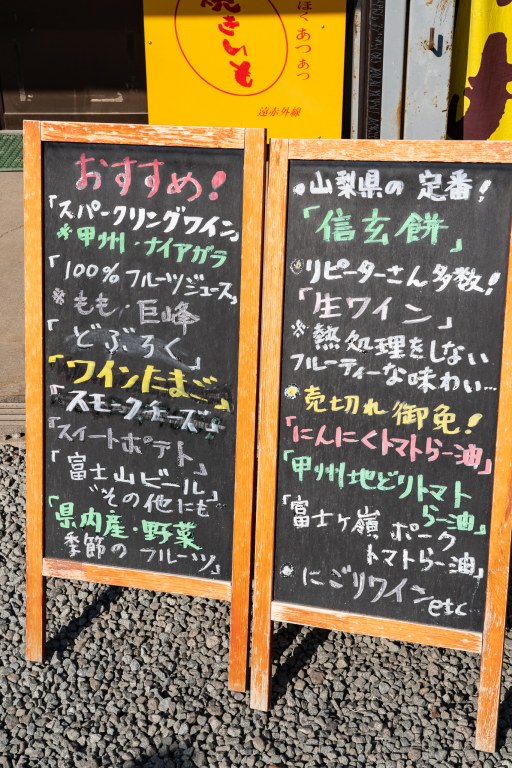 焼きいも
ほくあつあつ
遠赤外線
おすすめ!
「スパークリングワイン」
※甲州・ナイアガラ
「100%フルーツジュース」
※もも/巨峰
「どぶろく」
「ワインたまご」
「スモークチーズ」
「スイートポテト」
「富士山ビール」
〝その他にも〟
「県内産・野菜
季節のフルーツ」
山梨県の定番!
「信玄餅」
リピーターさん多数!
「生ワイン」
※熱処理をしない
フルーティーな味わい…
売切れ御免!
「にんにくトマトらー油」
「甲州地どりトマト
らー油」
「富士ヶ嶺ポーク
トマトらー油」
にごりワイン
etc…